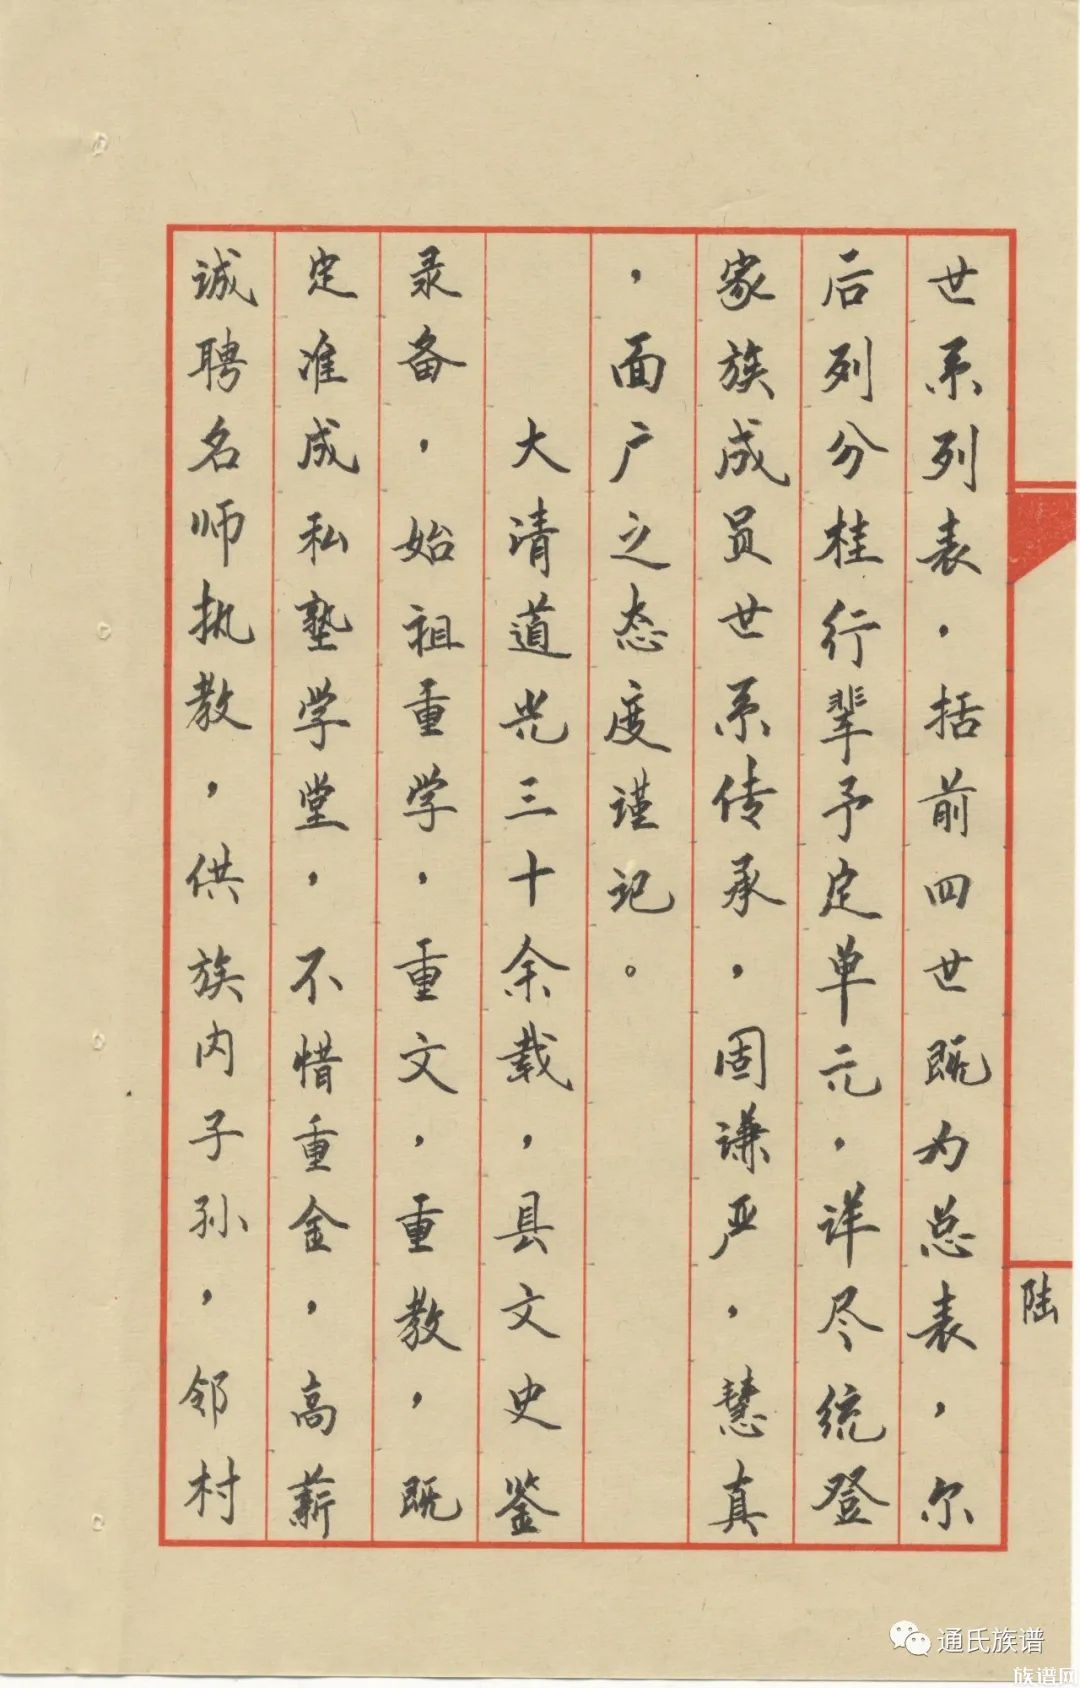 世系列表，括前四世既为总表，尔
后列分桂行辈予定单元，详尽统登
家族成员世系传承，固谦严，慧真
，面广之态度谨记。
大清道光三十余载，县文史鉴
录备，始祖重学，重文，重教，既
定准成私塾学堂，不惜重金，高薪
诚聘名师执教，供族内子孙，邻村
陆
通氏族谱
族谱网